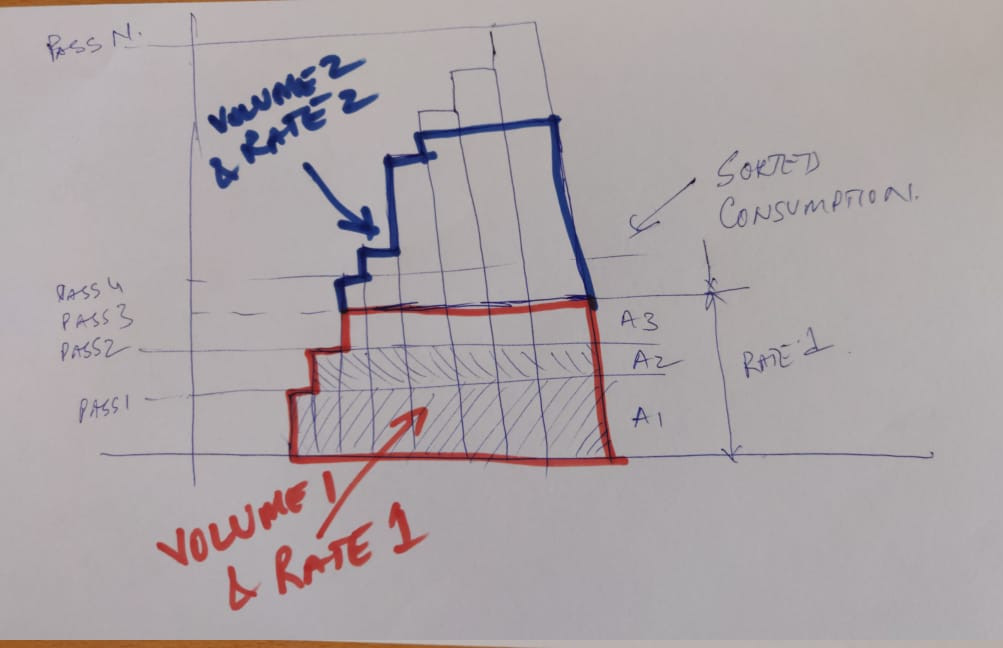 PASS N.
VOLUME 2
& RATE 2
SORTED
CONSUMPTION.
PASS 4
PASS 3
PASS2
PASS1
A3
A2
A1
RATE 1.
VOLUME 1
& RATE 1